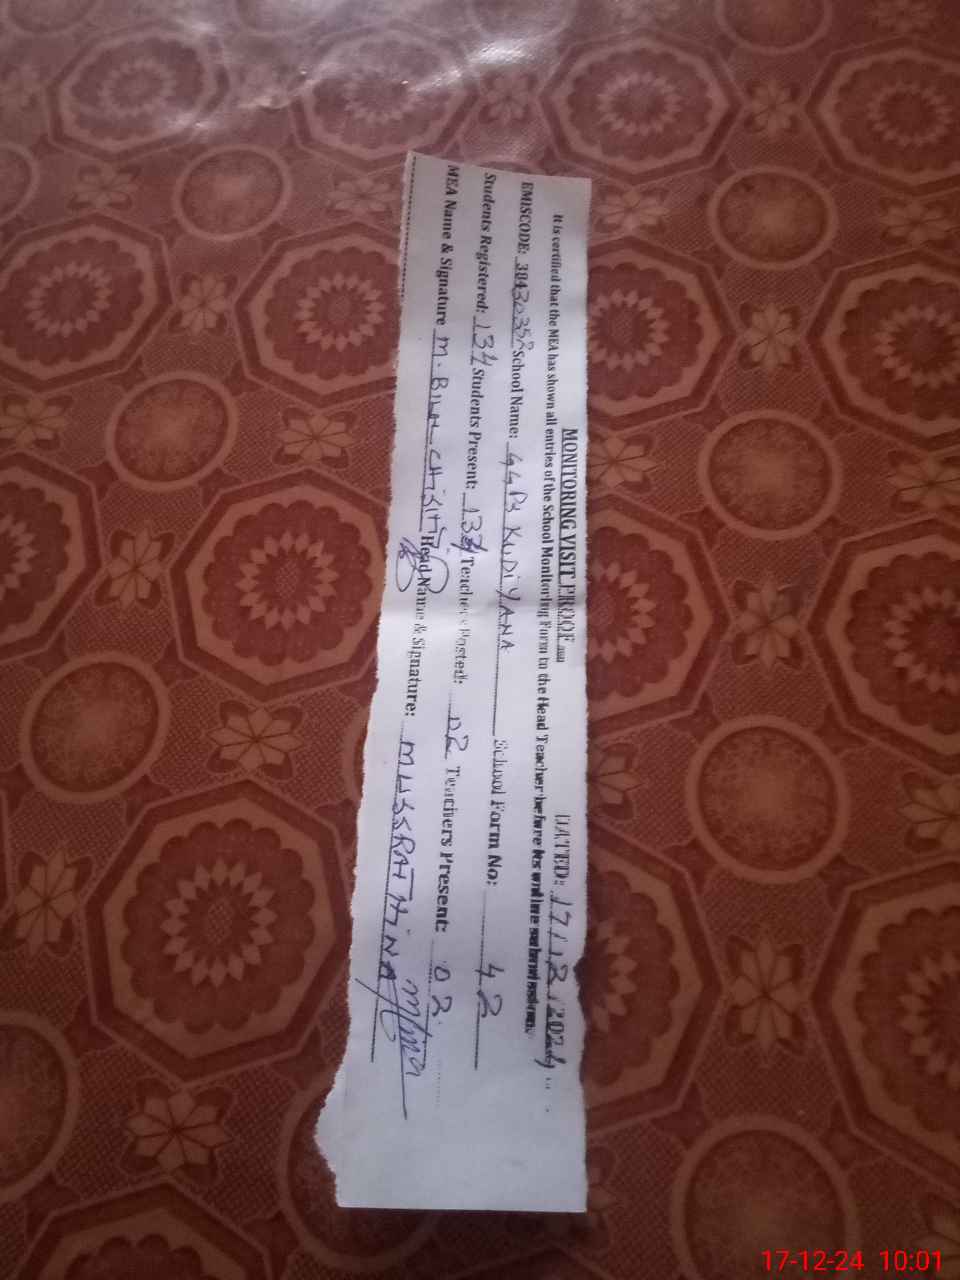 MONITORING VISIT PROOF DATED: 17/12/2024
It is certified that the MEA has shown all entries of the School Monitoring Form to the Head Teacher before its online submission.
EMISCODE: School Name: GGPS KUDiYANA School Form No: 42
Students Registered: 134 Students Present: Teachers Posted: 02 Teachers Present: 02
MEA Name & Signature M. BILAL CHISHTI Head Name & Signature: MUSSRAT HiNA
17-12-24 10:01